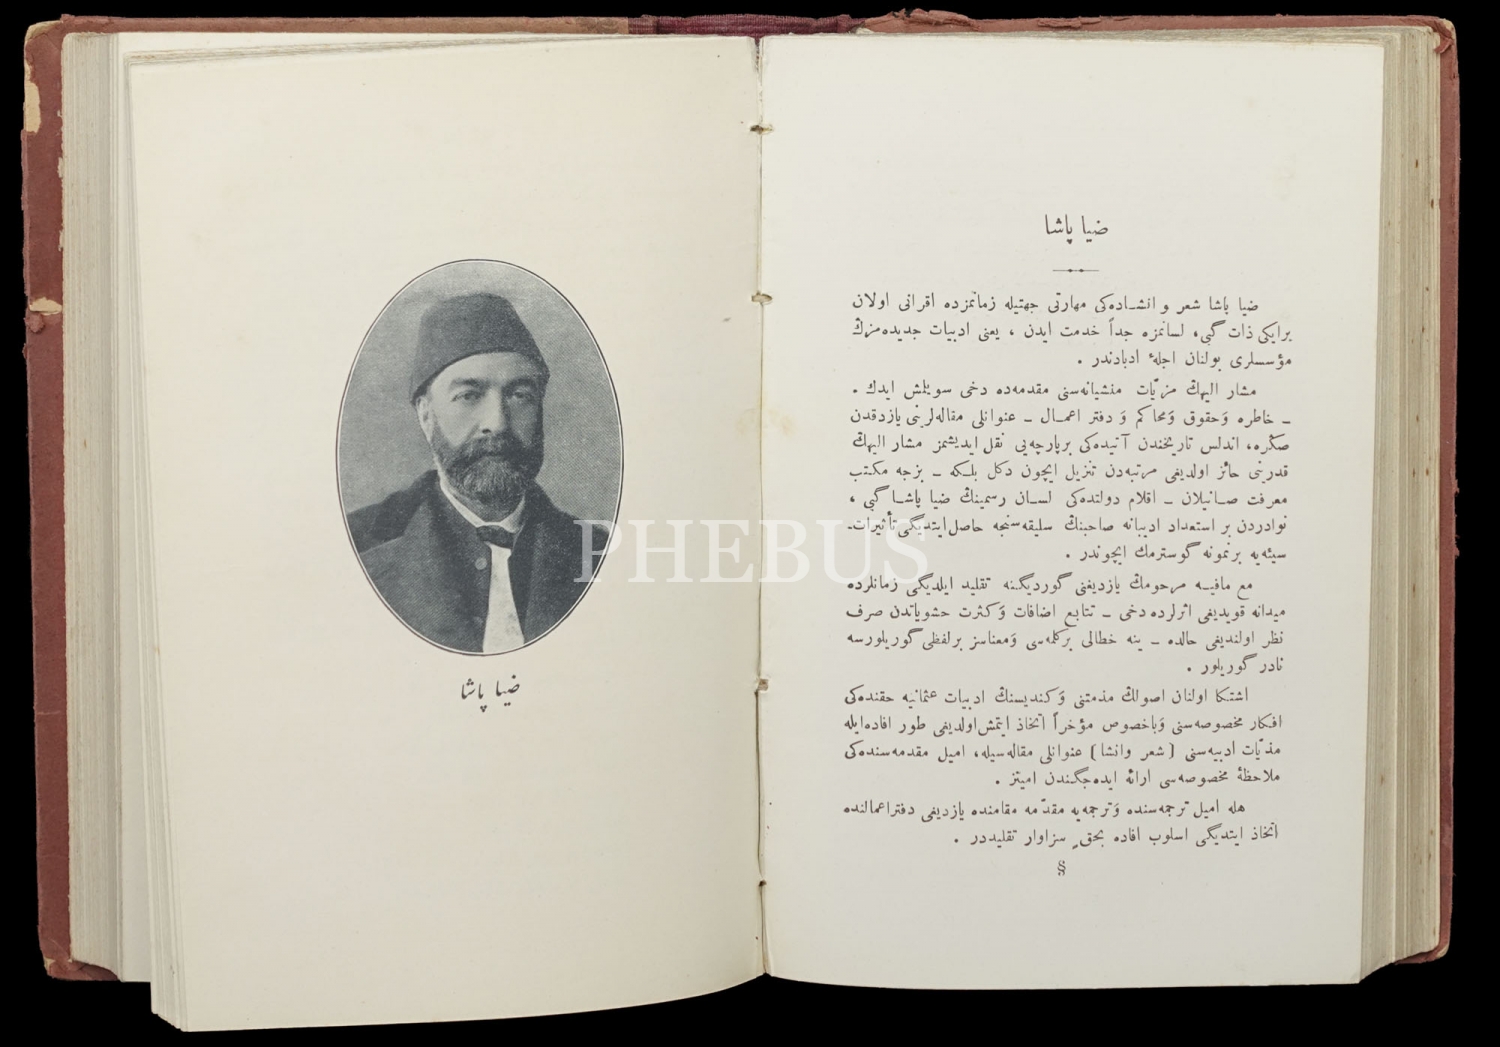 ضیا پاشا
PHEBUS
ضیا پاشا
ضیا پاشا شعر و انشاده‌کی مهارتی جهتیله زمانمزده اقرانی اولان
برایکی ذات گبی، لسانمزه جداً خدمت ایدن ، یعنی ادبیات جدیده‌مزڭ
مؤسسلری بولنان اجلهٔ ادبادندر .
مشار الیهڭ مزیّات منشیانه‌سنی مقدمه‌ده دخی سویلمش ایدك .
ـ خاطره وَحقوق وَمحاكم وَ دفتر اعمال ـ عنوانلی مقاله‌لرینی یازدقدن
صڭره، اندلس تاریخندن آتیده‌کی برپارچه‌یی نقل ایدیشمز مشار الیهڭ
قدرینی حائز اولدیغی مرتبه‌دن تنزیل ایچون دکل بلکه ـ بزجه مکتب
معرفت صانیلان ـ اقلام دولتده‌کی لسان رسمینڭ ضیا پاشا گبی ،
نوادردن بر استعداد ادیبانه صاحبنڭ سلیقه‌سنجه حاصل ایتدیگی تأثیرات
سیئه‌یه برنمونه گوسترمك ایچوندر .
مع مافیه مرحومڭ یازدیغنی گوردیگنه تقلید ایلدیگی زمانلرده
میدانه قویدیغی اثرلرده دخی ـ تتابع اضافات وَکثرت حشویاتدن صرف
نظر اولندیغی حالده ـ ینه خطالی برکلمه‌سی وَمعناسز برلفظی گوریلورسه
نادر گوریلور .
اشتکا اولنان اصولڭ مذمتنی وَکندیسنڭ ادبیات عثمانیه حقنده‌کی
افکار مخصوصه‌سنی وَباخصوص مؤخراً اتخاذ ایتمش اولدیغی طور افاده‌ایله
مزیّات ادبیه‌سنی (شعر وانشا) عنوانلی مقاله‌سیله، امیل مقدمه‌سنده‌کی
ملاحظهٔ مخصوصه‌سی ارائه ایده‌جگندن امینز .
هله امیل ترجمه‌سنده وَترجمه‌یه مقدّمه مقامنده یازدیغی دفتراعمالنده
اتخاذ ایتدیگی اسلوب افاده بحقٍ سزاوار تقلیددر .
§